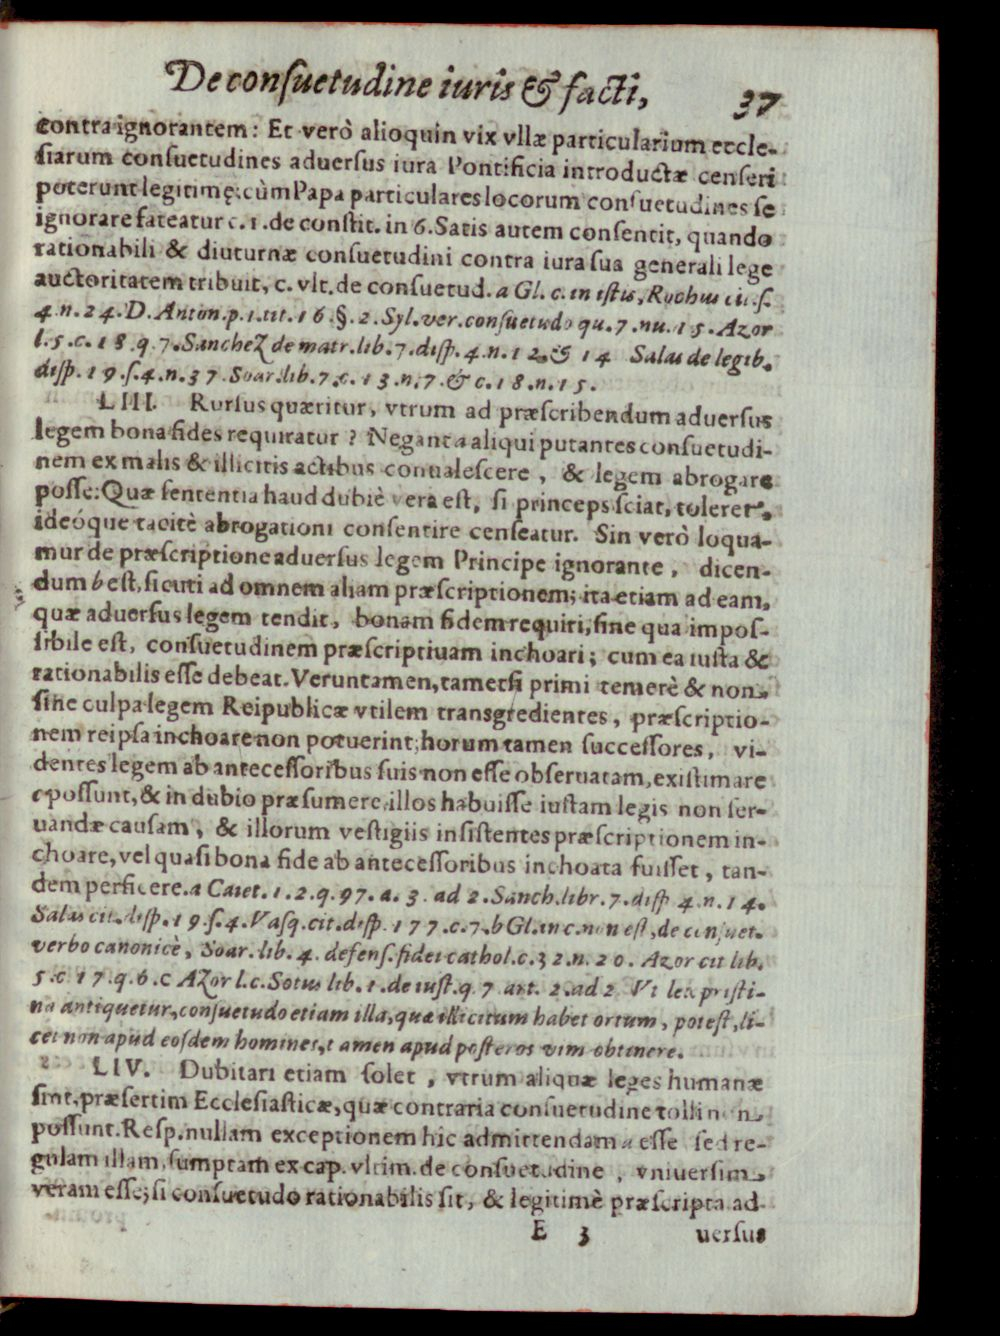 De consuetudine iuris & facti, 37
contra ignorantem: Et verò alioquin vix vllæ particularium eccle-
siarum consuetudines aduersus iura Pontificia introductæ censeri
poterunt legitimę: cùm Papa particulares locorum consuetudines se
ignorare fateatur c. 1. de constit. in 6. Satis autem consentit, quando
rationabili & diuturnæ consuetudini contra iura sua generali lege
auctoritatem tribuit, c. vlt. de consuetud. a Gl. c. in istis, Rochus cit. s.
4. n. 24. D. Anton. p. 1. tit. 16 §. 2. Syl. ver. consuetudo qu. 7. nu. 15. Azor
l. 5. c. 18. q. 7. Sanchez de matr. lib. 7. disp. 4. n. 12. & 14 Salas de legib.
disp. 19. s. 4. n. 37. Soar. lib. 7. c. 13. n. 7. & c. 18. n. 15.
LIII. Rursus quæritur, vtrum ad præscribendum aduersus
legem bona fides requiratur? Negant a aliqui putantes consuetudi-
nem ex malis & illicitis actibus conualescere, & legem abrogare
posse: Quæ sententia haud dubiè vera est, si princeps sciat, toleret,
ideóque tacitè abrogationi consentire censeatur. Sin verò loqua-
mur de præscriptione aduersus legem Principe ignorante, dicen-
dum b est, sicuti ad omnem aliam præscriptionem; ita etiam ad eam,
quæ aduersus legem tendit, bonam fidem requiri, sine qua impos-
sibile est, consuetudinem præscriptiuam inchoari; cum ea iusta &
rationabilis esse debeat. Veruntamen, tametsi primi temerè & non
sine culpa legem Reipublicæ vtilem transgredientes, præscriptio-
nem reipsa inchoare non potuerint; horum tamen successores, vi-
dentes legem ab antecessoribus suis non esse obseruatam, existimare
c possunt, & in dubio præsumere, illos habuisse iustam legis non ser-
uandæ causam, & illorum vestigiis insistentes præscriptionem in-
choare, vel quasi bona fide ab antecessoribus inchoata fuisset, tan-
dem perficere. a Caiet. 1. 2. q. 97. a. 3. ad 2. Sanch. libr. 7. disp 4. n. 14.
Salas cit. disp. 19. s. 4. Vasq. cit. disp. 177. c. 7. b Gl. in c. non est, de consuet.
verbo canonicè, Soar. lib. 4. defens. fidei cathol. c. 32. n. 20. Azor cit lib.
5. c 17. q. 6. c Azor l. c. Sotus lib. 1. de iust. q. 7 art. 2. ad 2 Vt lex pristi-
na antiquetur, consuetudo etiam illa, quæ illicitum habet ortum, potest, li-
cet non apud eosdem homines, tamen apud posteros vim obtinere.
LIV. Dubitari etiam solet, vtrum aliquæ leges humanæ
sint, præsertim Ecclesiasticæ, quæ contraria consuetudine tolli non
possunt. Resp. nullam exceptionem hic admittendam a esse sed re-
gulam illam, sumptam ex cap. vltim. de consuetudine, vniuersim
veram esse; si consuetudo rationabilis sit, & legitimè præscripta ad-
E 3 uersus